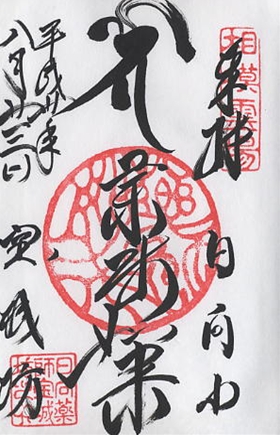 相模霊場
奉拝 日向山
薬師
平成廿年
八月廿三日
寳城坊
日向薬
師宝城